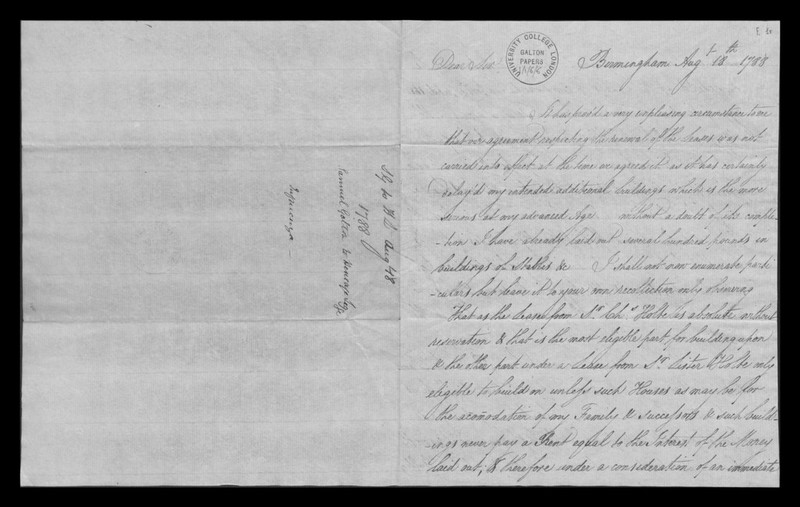 E 10
UNIVERSITY COLLEGE LONDON
GALTON
PAPERS
Dear Sir
Birmingham Augt 18th 1788
It has prov'd a very unpleasing circumstance to me
that our agreement respecting the renewal of the Leases was not
carried into effect at the time we agreed it as it has certainly
delay'd my intended additional buildings which is the more
serious at my advanced Age without a doubt of its comple
-tion I have already laid out several hundred pounds in
buildings of Stables &c I shall not now enumerate parti
-culars but leave it to your own recollection only observing
That as the Lease from Sr Chs Holte is absolute without
reservation & that is the most eligible part for building upon
& the other part under a Lease from Sr Lister Holte only
eligible to build on unless such Houses as may be for
the acomodation of my Family & successors & such build-
-ings never pay a Rent equal to the Interest of the Money
laid out; & therefore under a consideration of an immediate
Aug 18
1788
Samuel Galton to Heneage Legge